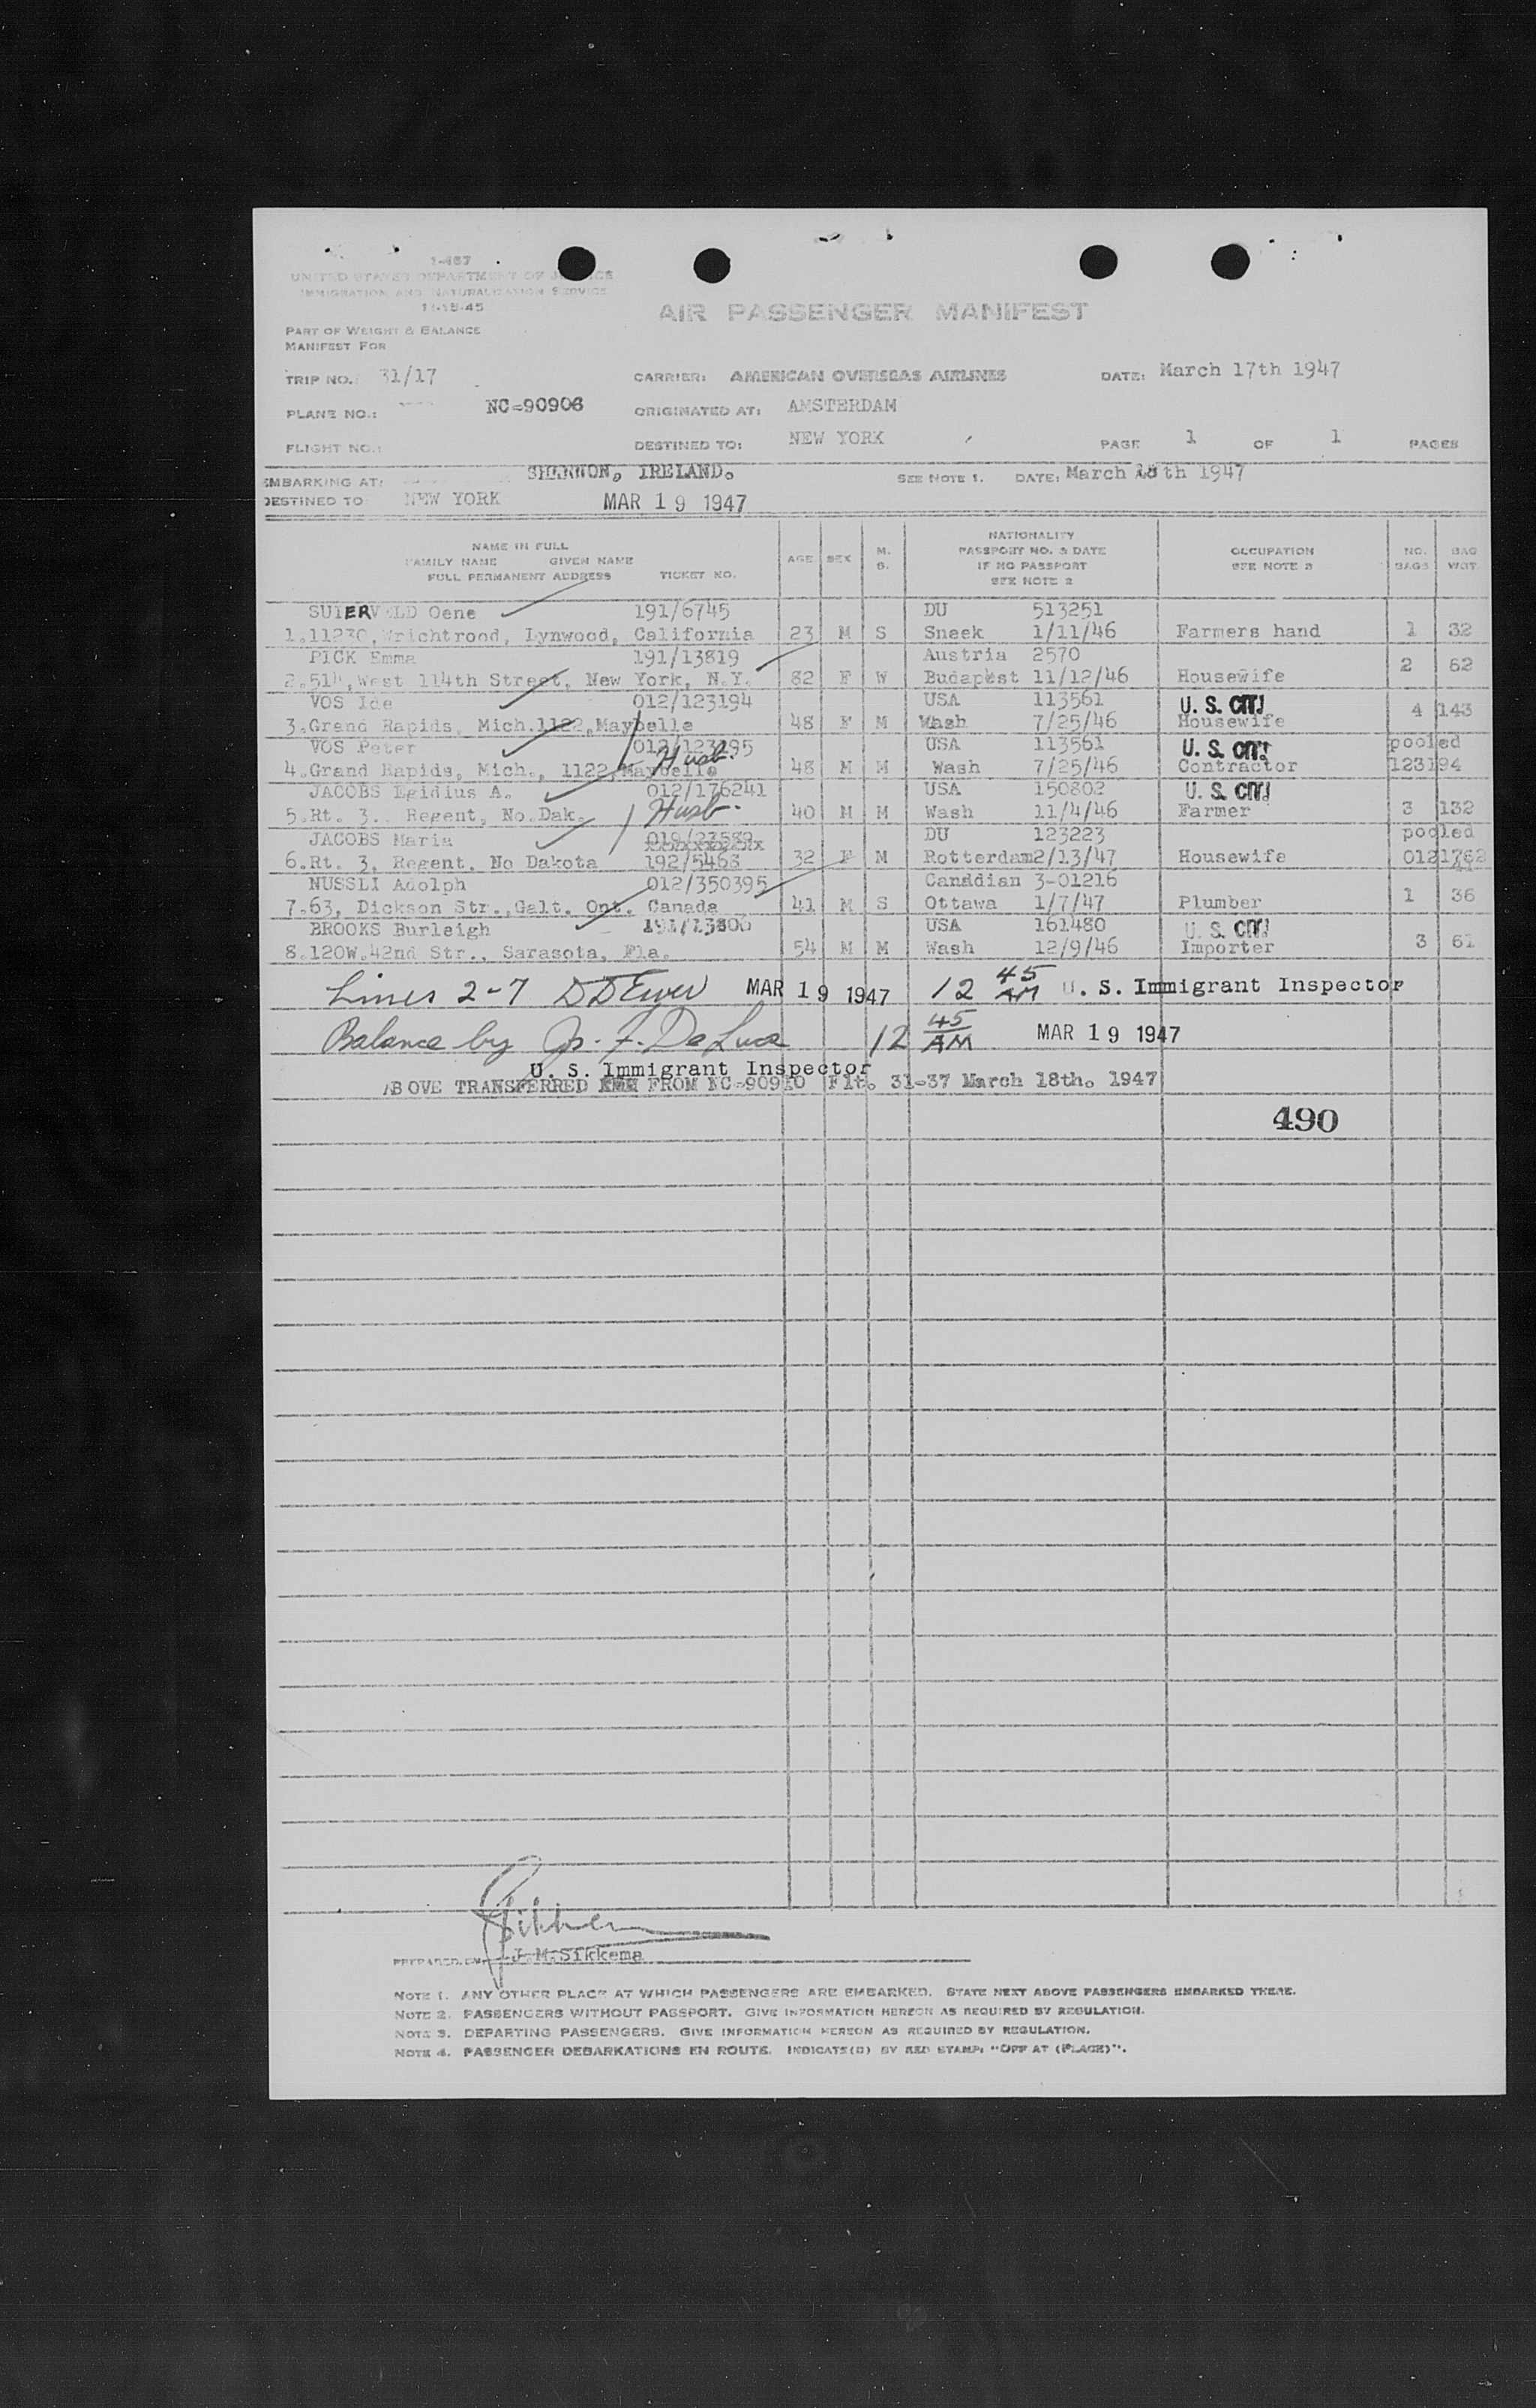 1-467
UNITED STATES DEPARTMENT OF JUSTICE
IMMIGRATION AND NATURALIZATION SERVICE
11-15-45
AIR PASSENGER MANIFEST
PART OF WEIGHT & BALANCE
MANIFEST FOR
TRIP NO.: 31/17 CARRIER: AMERICAN OVERSEAS AIRLINES DATE: March 17th 1947
PLANE NO.: NC-90906 ORIGINATED AT: AMSTERDAM
FLIGHT NO.: DESTINED TO: NEW YORK PAGE 1 OF 1 PAGES
EMBARKING AT: SHANNON, IRELAND. SEE NOTE 1. DATE: March 18th 1947
DESTINED TO NEW YORK MAR 19 1947
NAME IN FULL
FAMILY NAME GIVEN NAME
FULL PERMANENT ADDRESS TICKET NO. AGE SEX M. S. NATIONALITY PASSPORT NO. & DATE IF NO PASSPORT SEE NOTE 2 OCCUPATION SEE NOTE 3 NO. BAGS BAG WGT.
SUIERVELD Oene 191/6745 DU 513251
1.11230, Wrichtrood, Lynwood, California 23 M S Sneek 1/11/46 Farmers hand 1 32
PICK Emma 191/13819 Austria 2570
2.514, West 114th Street, New York, N.Y. 82 F W Budapest 11/12/46 Housewife 2 62
VOS Ide 012/123194 USA 113561 U. S. CIT.
3.Grand Rapids, Mich.1122,Maybelle 48 F M Wash 7/25/46 Housewife 4 143
VOS Peter 012/123195 Husb. USA 113561 U. S. CIT. pooled
4.Grand Rapids, Mich., 1122,Maybelle 48 M M Wash 7/25/46 Contractor 123194
JACOBS Egidius A. 012/176241 USA 150802 U. S. CIT.
5.Rt. 3.. Regent, No.Dak. Husb. 40 M M Wash 11/4/46 Farmer 3 132
JACOBS Maria 019/23589 DU 123223 pooled
6.Rt. 3, Regent, No Dakota 192/5468 32 F M Rotterdam2/13/47 Housewife
NUSSLI Adolph 012/350395 Canadian 3-01216
7.63, Dickson Str.,Galt. Ont. Canada 41 M S Ottawa 1/7/47 Plumber 1 36
BROOKS Burleigh 191/13806 USA 161480 U. S. CIT.
8.120W.42nd Str., Sarasota, Fla. 54 M M Wash 12/9/46 Importer 3 61
Lines 2-7 MAR 19 1947 12 45 AM U. S. Immigrant Inspector
Balance by Jo. F. De Luca 12 45 AM MAR 19 1947
U. S. Immigrant Inspector
ABOVE TRANSFERRED FROM NC-90910 Flt. 31-37 March 18th. 1947
490
PREPARED BY J.M.Sikkema
NOTE 1. ANY OTHER PLACE AT WHICH PASSENGERS ARE EMBARKED. STATE NEXT ABOVE PASSENGERS EMBARKED THERE.
NOTE 2. PASSENGERS WITHOUT PASSPORT. GIVE INFORMATION HEREON AS REQUIRED BY REGULATION.
NOTE 3. DEPARTING PASSENGERS. GIVE INFORMATION HEREON AS REQUIRED BY REGULATION.
NOTE 4. PASSENGER DEBARKATIONS EN ROUTE. INDICATE(D) BY RED STAMP: "OFF AT (PLACE)".